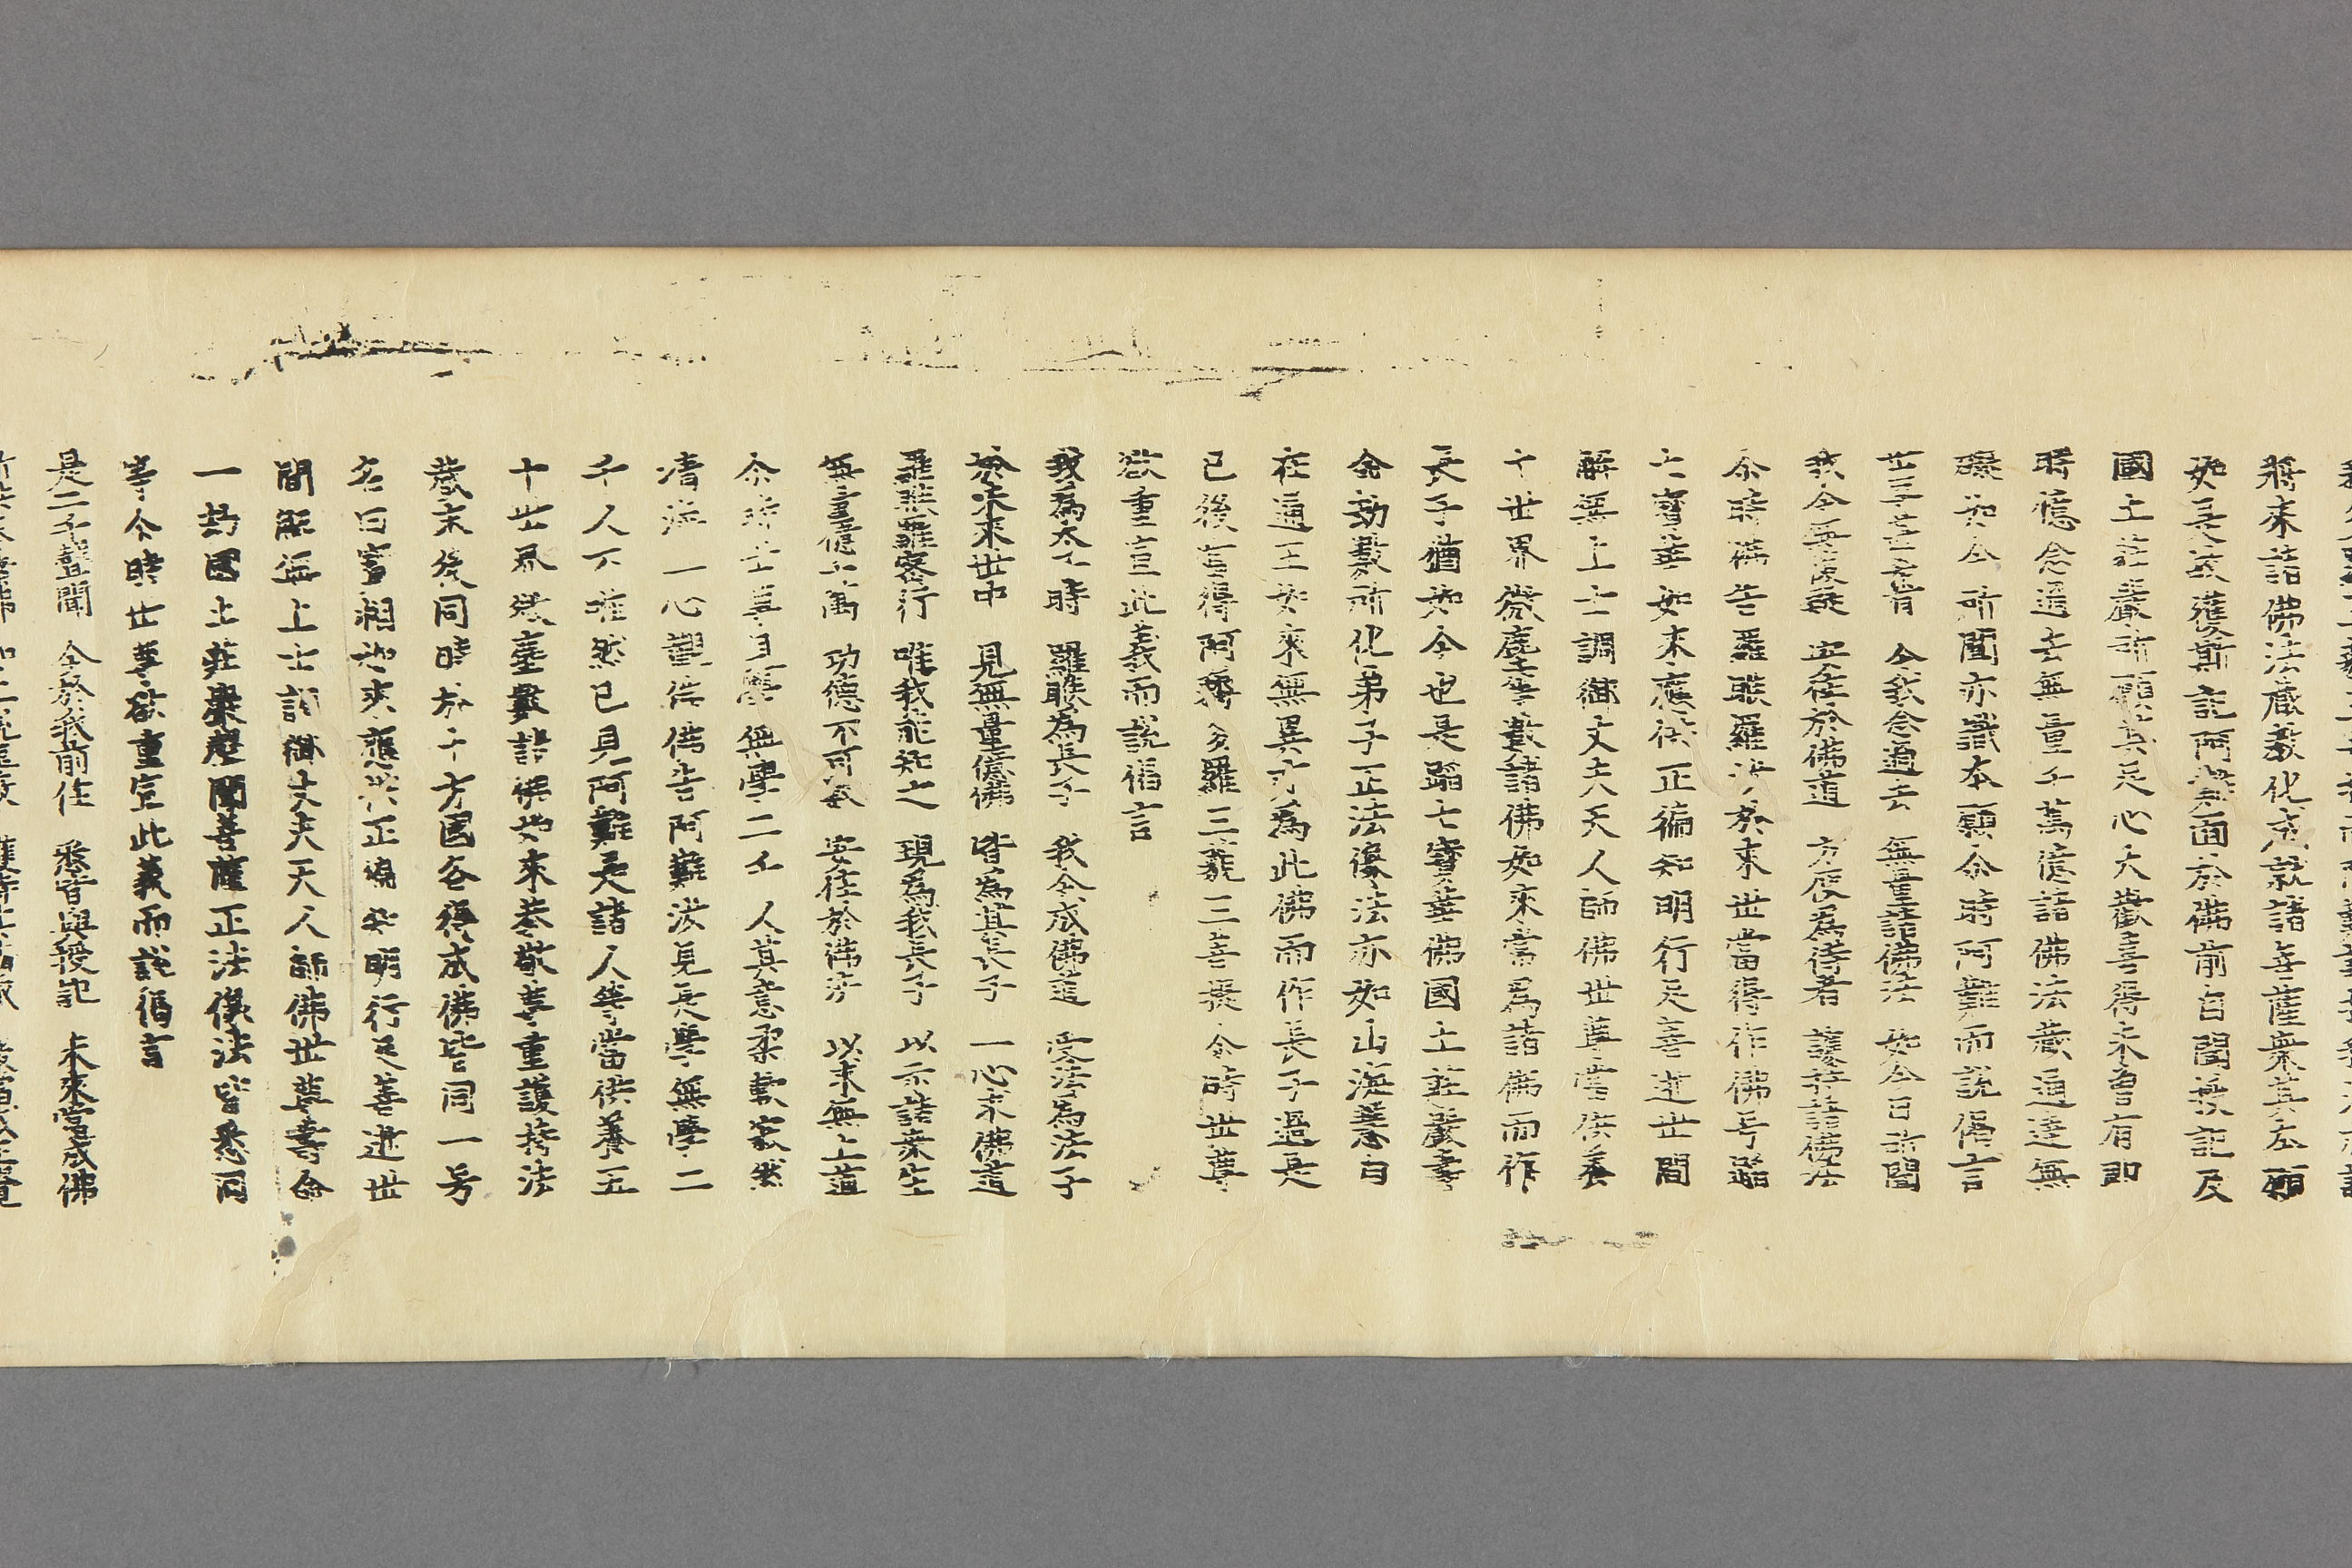 將來諸佛法藏教化成就諸菩薩衆其本願
如是故獲斯記阿難面於佛前自聞授記及
國土莊嚴所願具足心大歡喜得未曾有即
時憶念過去無量千萬億諸佛法藏通達無
礙如今所聞亦識本願尒時阿難而說偈言
世尊甚希有 令我念過去 無量諸佛法 如今日所聞
我今無復疑 安住於佛道 方便爲侍者 護持諸佛法
尒時佛告羅睺羅汝於來世當得作佛号蹈
七寶華如來應供正徧知明行足善逝世間
解無上士調御丈夫天人師佛世尊當供養
十世界微塵等數諸佛如來常爲諸佛而作
長子猶如今也是蹈七寶華佛國土莊嚴壽
命劫數所化弟子正法像法亦如山海慧自
在通王如來無異亦爲此佛而作長子過是
已後當得阿耨多羅三藐三菩提尒時世尊
欲重宣此義而說偈言
我爲太子時 羅睺爲長子 我今成佛道 受法爲法子
於未來世中 見無量億佛 皆爲其長子 一心求佛道
羅睺羅密行 唯我能知之 現爲我長子 以示諸衆生
無量億千萬 功德不可數 安住於佛法 以求無上道
尒時世尊見學無學二千人其意柔軟寂然
清淨一心觀佛佛告阿難汝見是學無學二
千人不唯然已見阿難是諸人等當供養五
十世界微塵數諸佛如來恭敬尊重護持法
藏末後同時於十方國各得成佛皆同一号
名曰寶相如來應供正徧知明行足善逝世
間解無上士調御丈夫天人師佛世尊壽命
一劫國土莊嚴聲聞菩薩正法像法皆悉同
等尒時世尊欲重宣此義而說偈言
是二千聲聞 今於我前住 悉皆與授記 未來當成佛